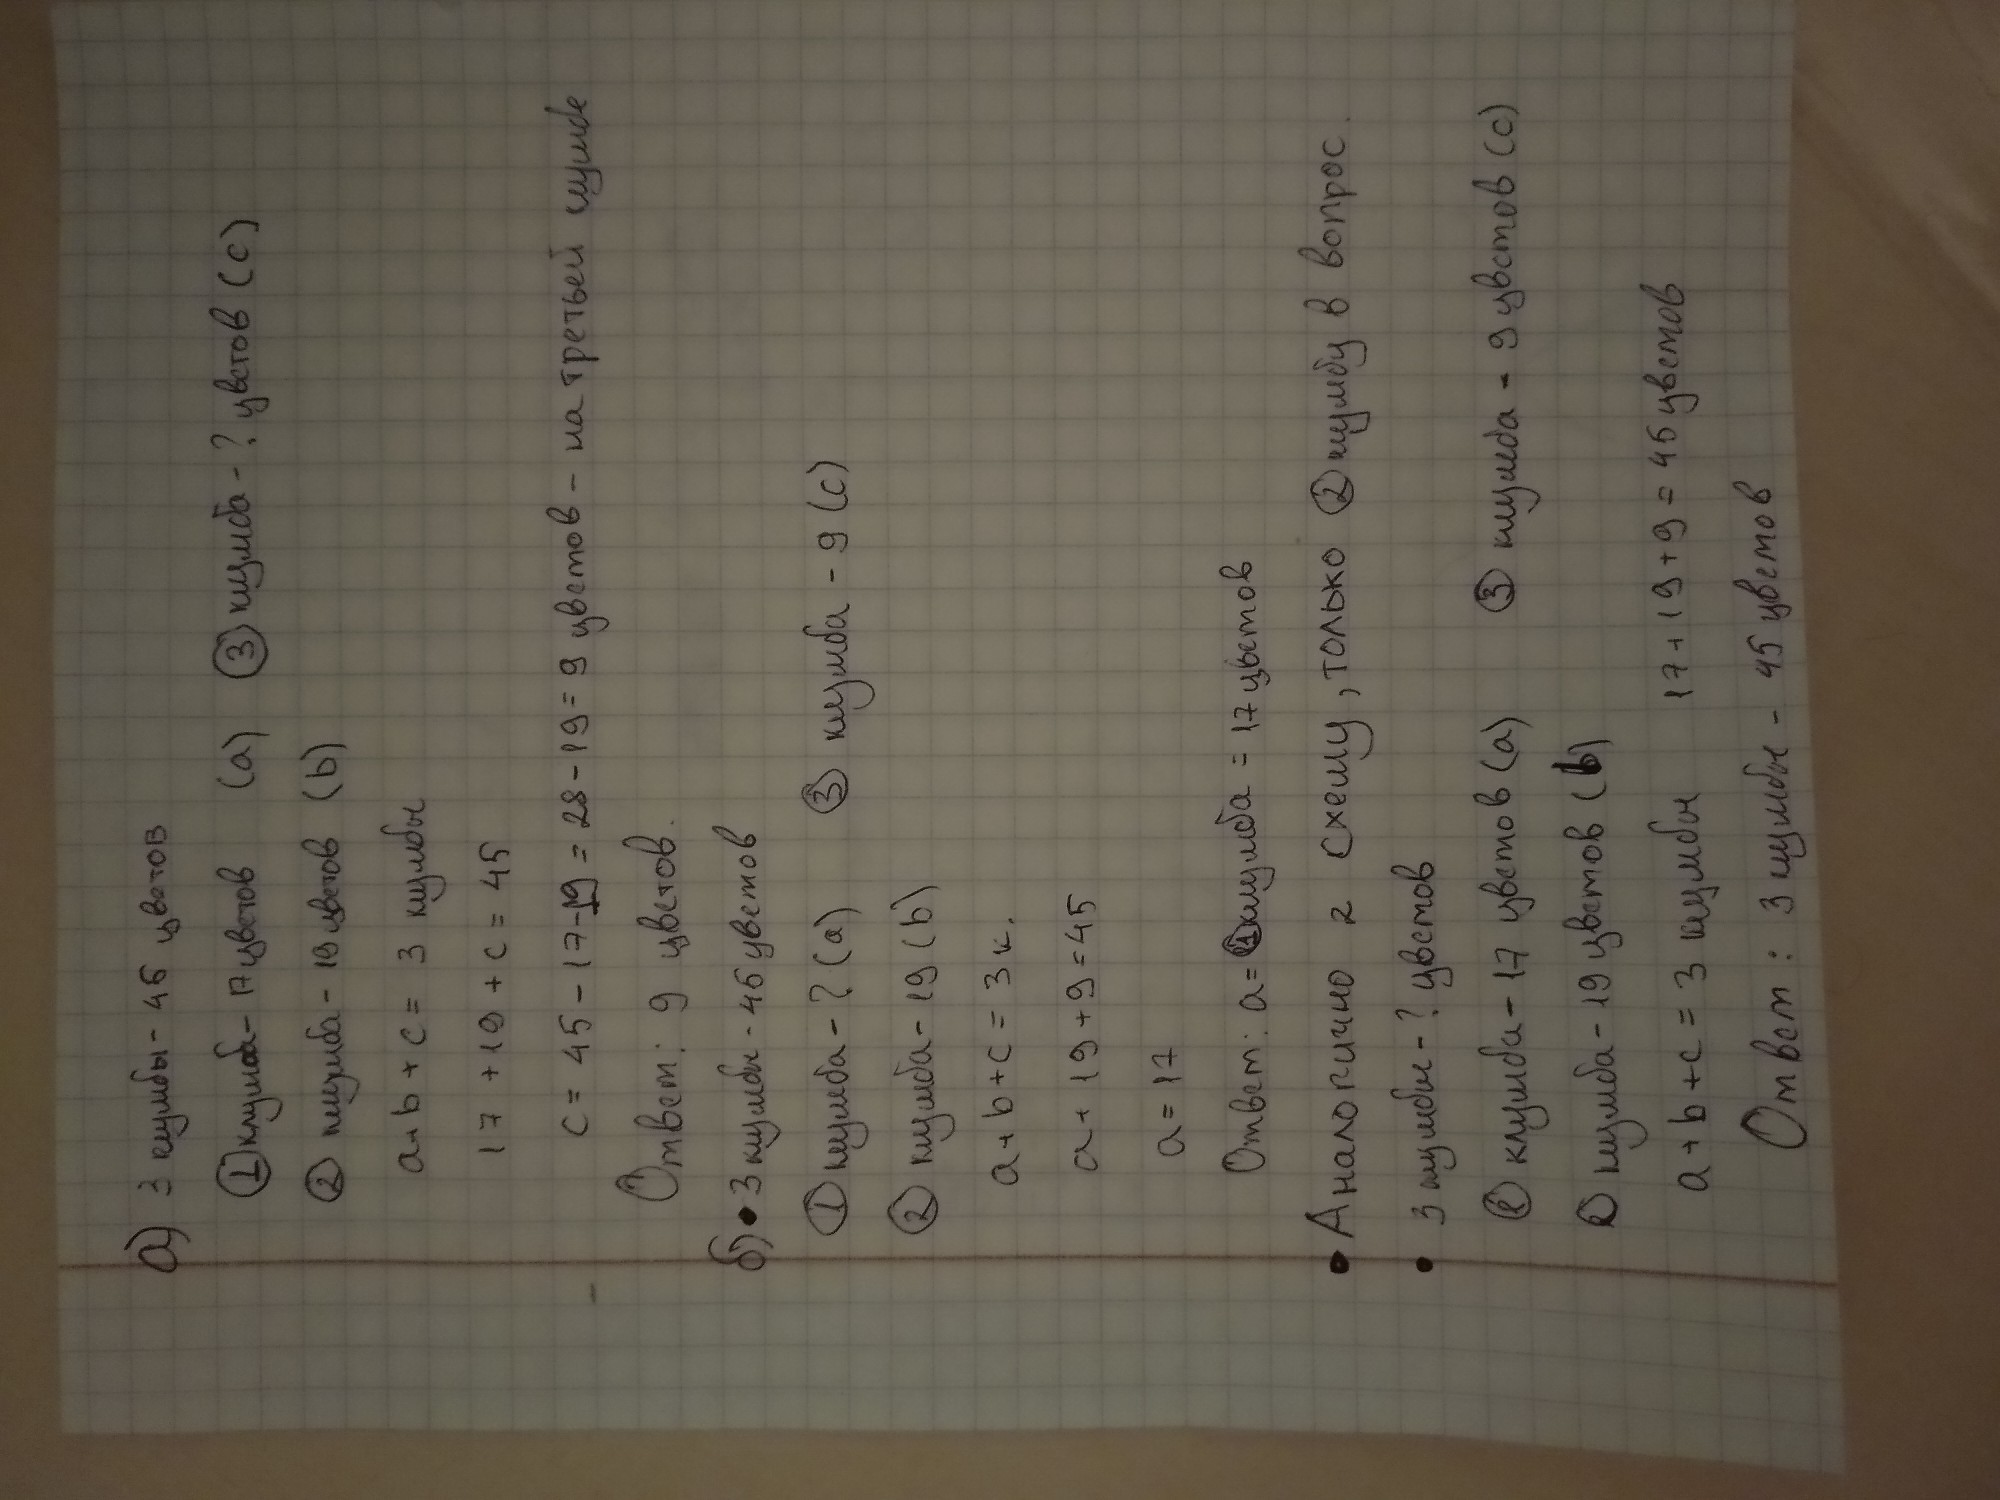 а) 3 клумбы - 45 цветов
① клумба - 17 цветов (a) ③ клумба - ? цветов (c)
② клумба - 19 цветов (b)
a + b + c = 3 клумбы
17 + 19 + c = 45
c = 45 - 17 - 19 = 28 - 19 = 9 цветов - на третьей клумбе
Ответ: 9 цветов.
б) • 3 клумбы - 45 цветов
① клумба - ? (a) ③ клумба - 9 (c)
② клумба - 19 (b)
a + b + c = 3 к.
a + 19 + 9 = 45
a = 17
Ответ: a = ① клумба = 17 цветов
• Аналогично 2 схему, только ② клумбу в вопрос.
• 3 клумбы - ? цветов
① клумба - 17 цветов (a) ③ клумба - 9 цветов (c)
② клумба - 19 цветов (b)
a + b + c = 3 клумбы 17 + 19 + 9 = 45 цветов
Ответ: 3 клумбы - 45 цветов